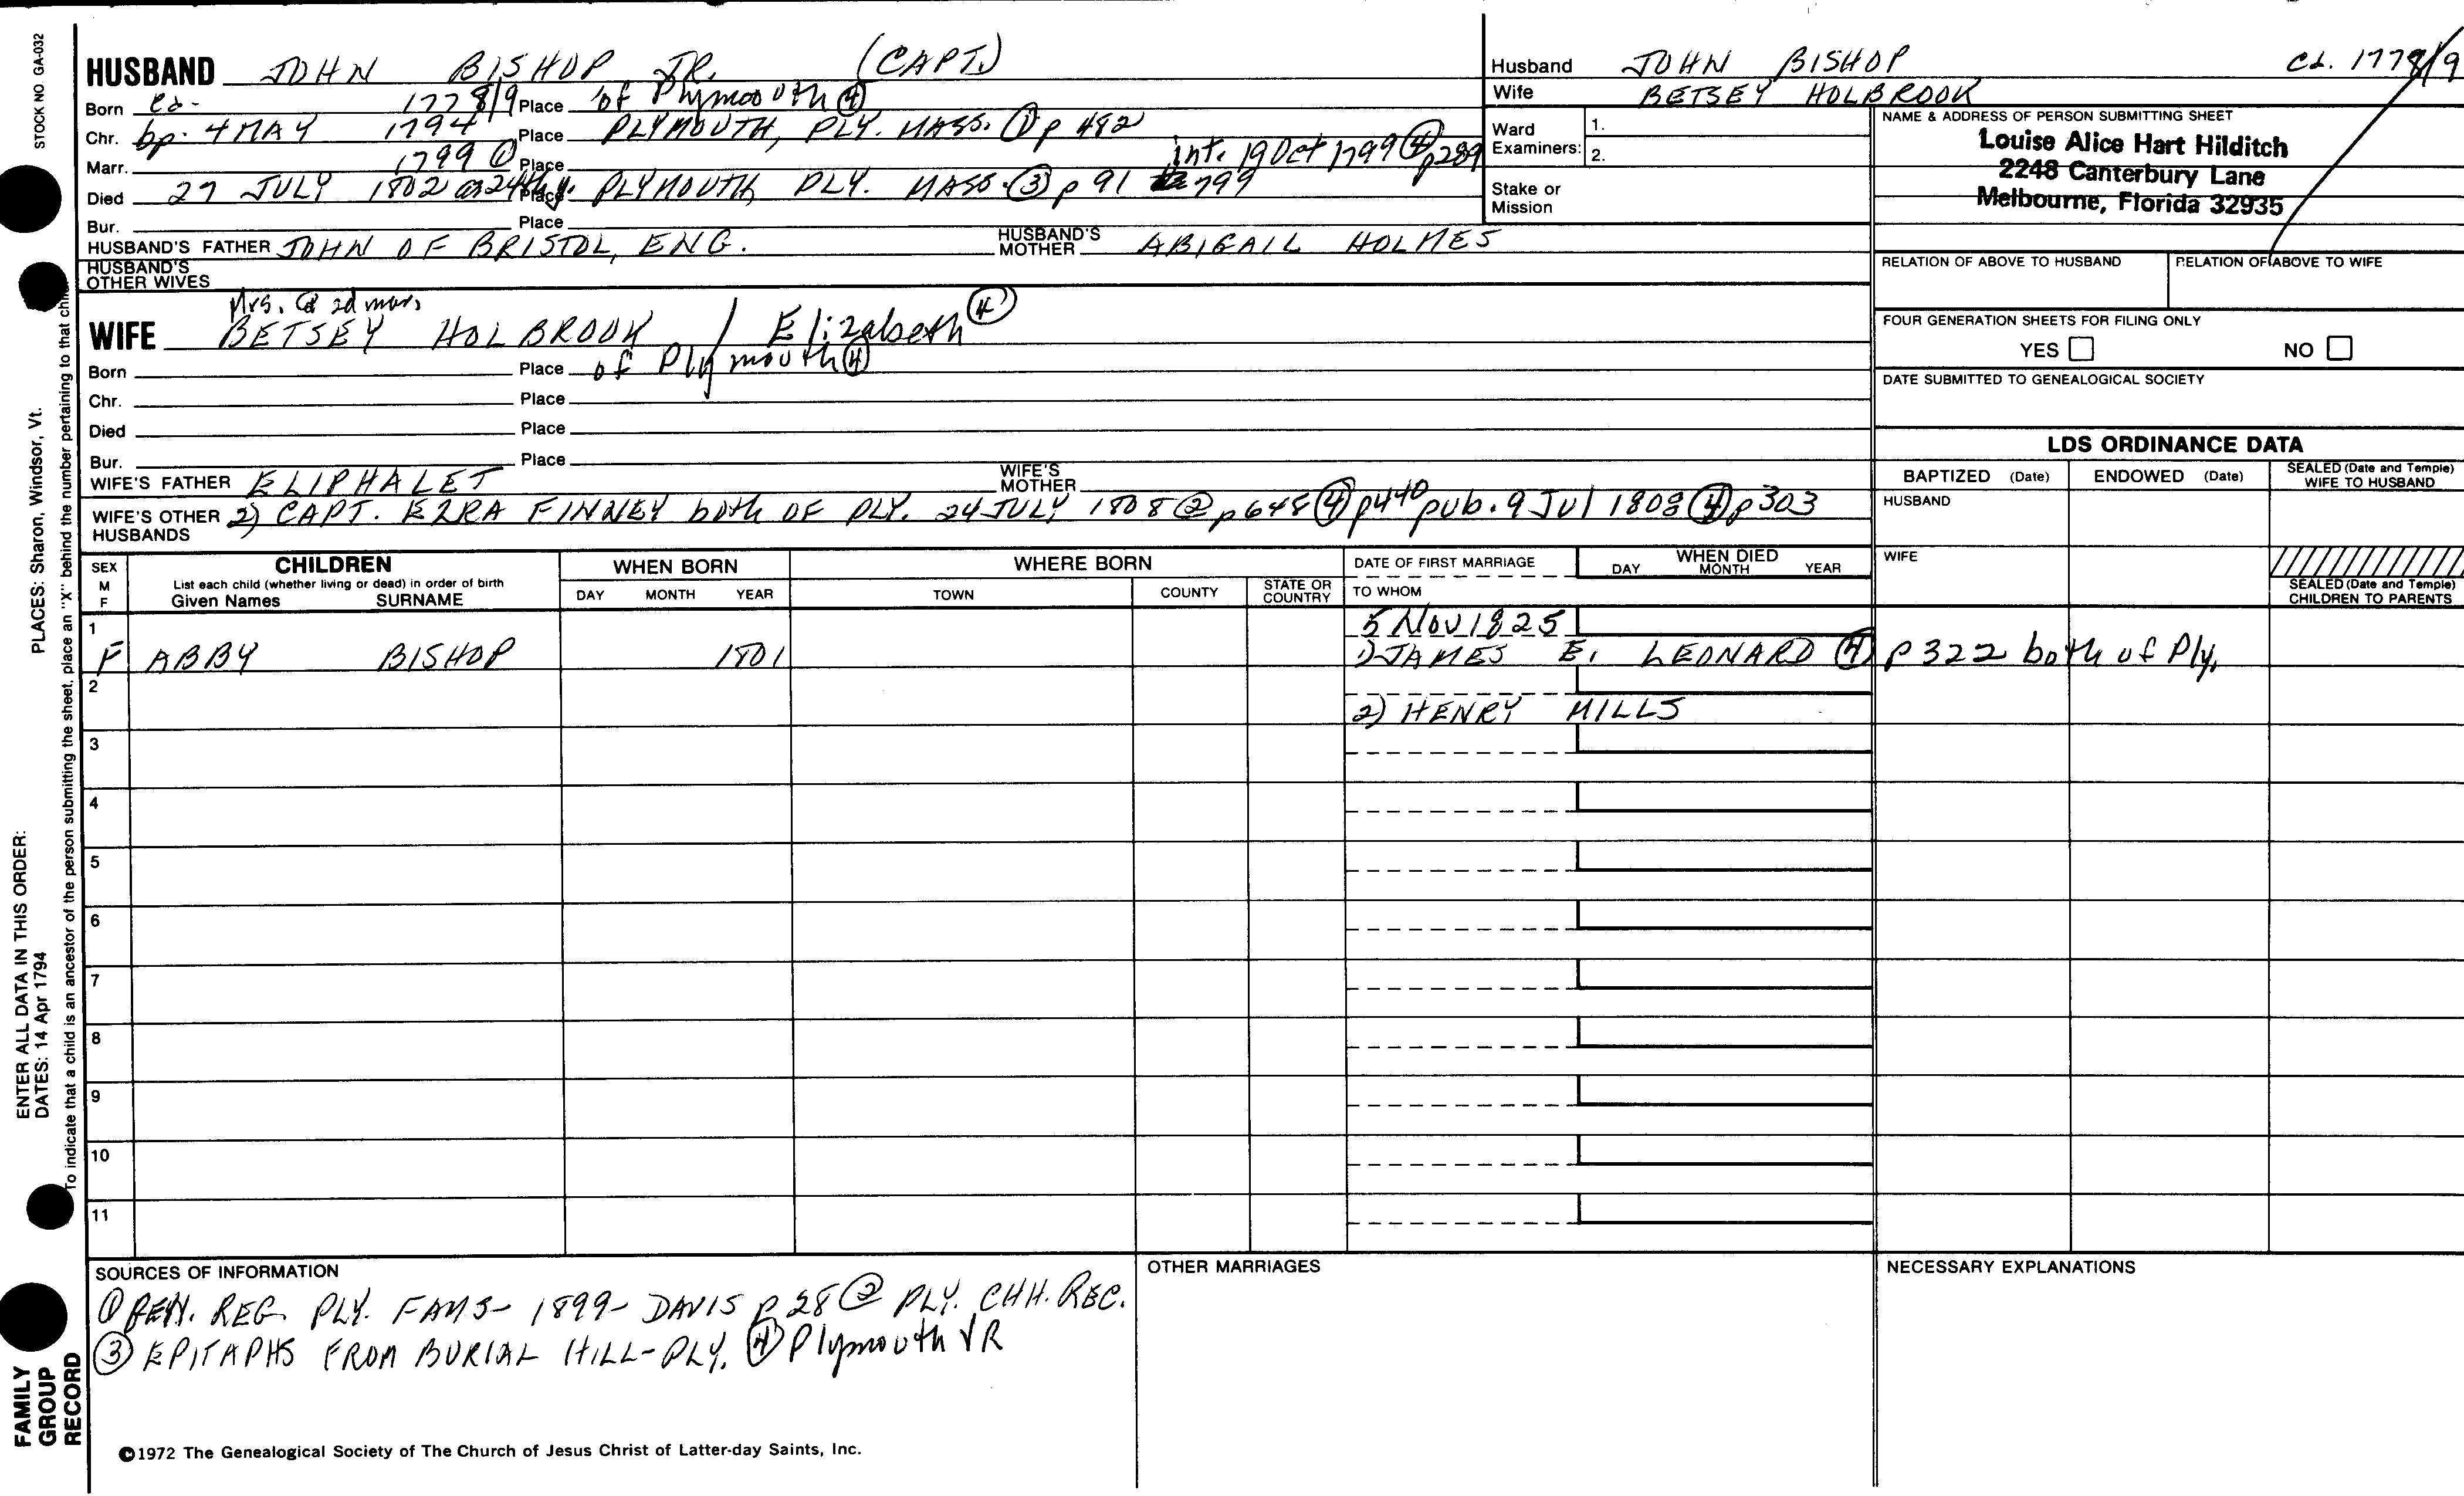 STOCK NO GA-032
HUSBAND JOHN BISHOP JR. (CAPT.)
Born Ca- 1778/9 Place of Plymouth ④
Chr. bp. 4 MAY 1794 Place PLYMOUTH, PLY. MASS. ① p 482
Marr. 1799 ① Place int. 19 Oct 1799 ④ p289
Died 27 JULY 1802 Place PLYMOUTH, PLY. MASS. ③ p 91 799
Bur. Place
HUSBAND'S FATHER JOHN OF BRISTOL, ENG. HUSBAND'S MOTHER ABIGAIL HOLMES
HUSBAND'S OTHER WIVES
Mrs. @ 2d mar.
WIFE BETSEY HOLBROOK / Elizabeth ④
Born Place of Plymouth ④
Chr. Place
Died Place
Bur. Place
WIFE'S FATHER ELIPHALET WIFE'S MOTHER
WIFE'S OTHER HUSBANDS 2) CAPT. EZRA FINNEY both OF PLY. 24 JULY 1808 ② p648 ④ p440 pub. 9 Jul 1808 ④ p303
Husband JOHN BISHOP Ca. 1778/9
Wife BETSEY HOLBROOK
Ward Examiners: 1.
2.
Stake or Mission
NAME & ADDRESS OF PERSON SUBMITTING SHEET
Louise Alice Hart Hilditch
2248 Canterbury Lane
Melbourne, Florida 32935
RELATION OF ABOVE TO HUSBAND RELATION OF ABOVE TO WIFE
FOUR GENERATION SHEETS FOR FILING ONLY
YES NO
DATE SUBMITTED TO GENEALOGICAL SOCIETY
LDS ORDINANCE DATA
BAPTIZED (Date) ENDOWED (Date) SEALED (Date and Temple) WIFE TO HUSBAND
HUSBAND
WIFE
SEALED (Date and Temple) CHILDREN TO PARENTS
SEX M F
CHILDREN
List each child (whether living or dead) in order of birth
Given Names SURNAME
WHEN BORN
DAY MONTH YEAR
WHERE BORN
TOWN COUNTY STATE OR COUNTRY
DATE OF FIRST MARRIAGE
TO WHOM
WHEN DIED
DAY MONTH YEAR
1 5 Nov 1825
F ABBY BISHOP 1801 1) JAMES E. LEONARD ④ p322 both of Ply.
2
2) HENRY MILLS
3
4
5
6
7
8
9
10
11
SOURCES OF INFORMATION
① GEN. REG. PLY. FAMS- 1899- DAVIS p 28 ② PLY. CHH. REC.
③ EPITAPHS FROM BURIAL HILL-PLY. ④ Plymouth VR
OTHER MARRIAGES
NECESSARY EXPLANATIONS
©1972 The Genealogical Society of The Church of Jesus Christ of Latter-day Saints, Inc.
PLACES: Sharon, Windsor, Vt.
ENTER ALL DATA IN THIS ORDER:
DATES: 14 Apr 1794
To indicate that a child is an ancestor of the person submitting the sheet, place an "X" behind the number pertaining to that child.
FAMILY
GROUP
RECORD